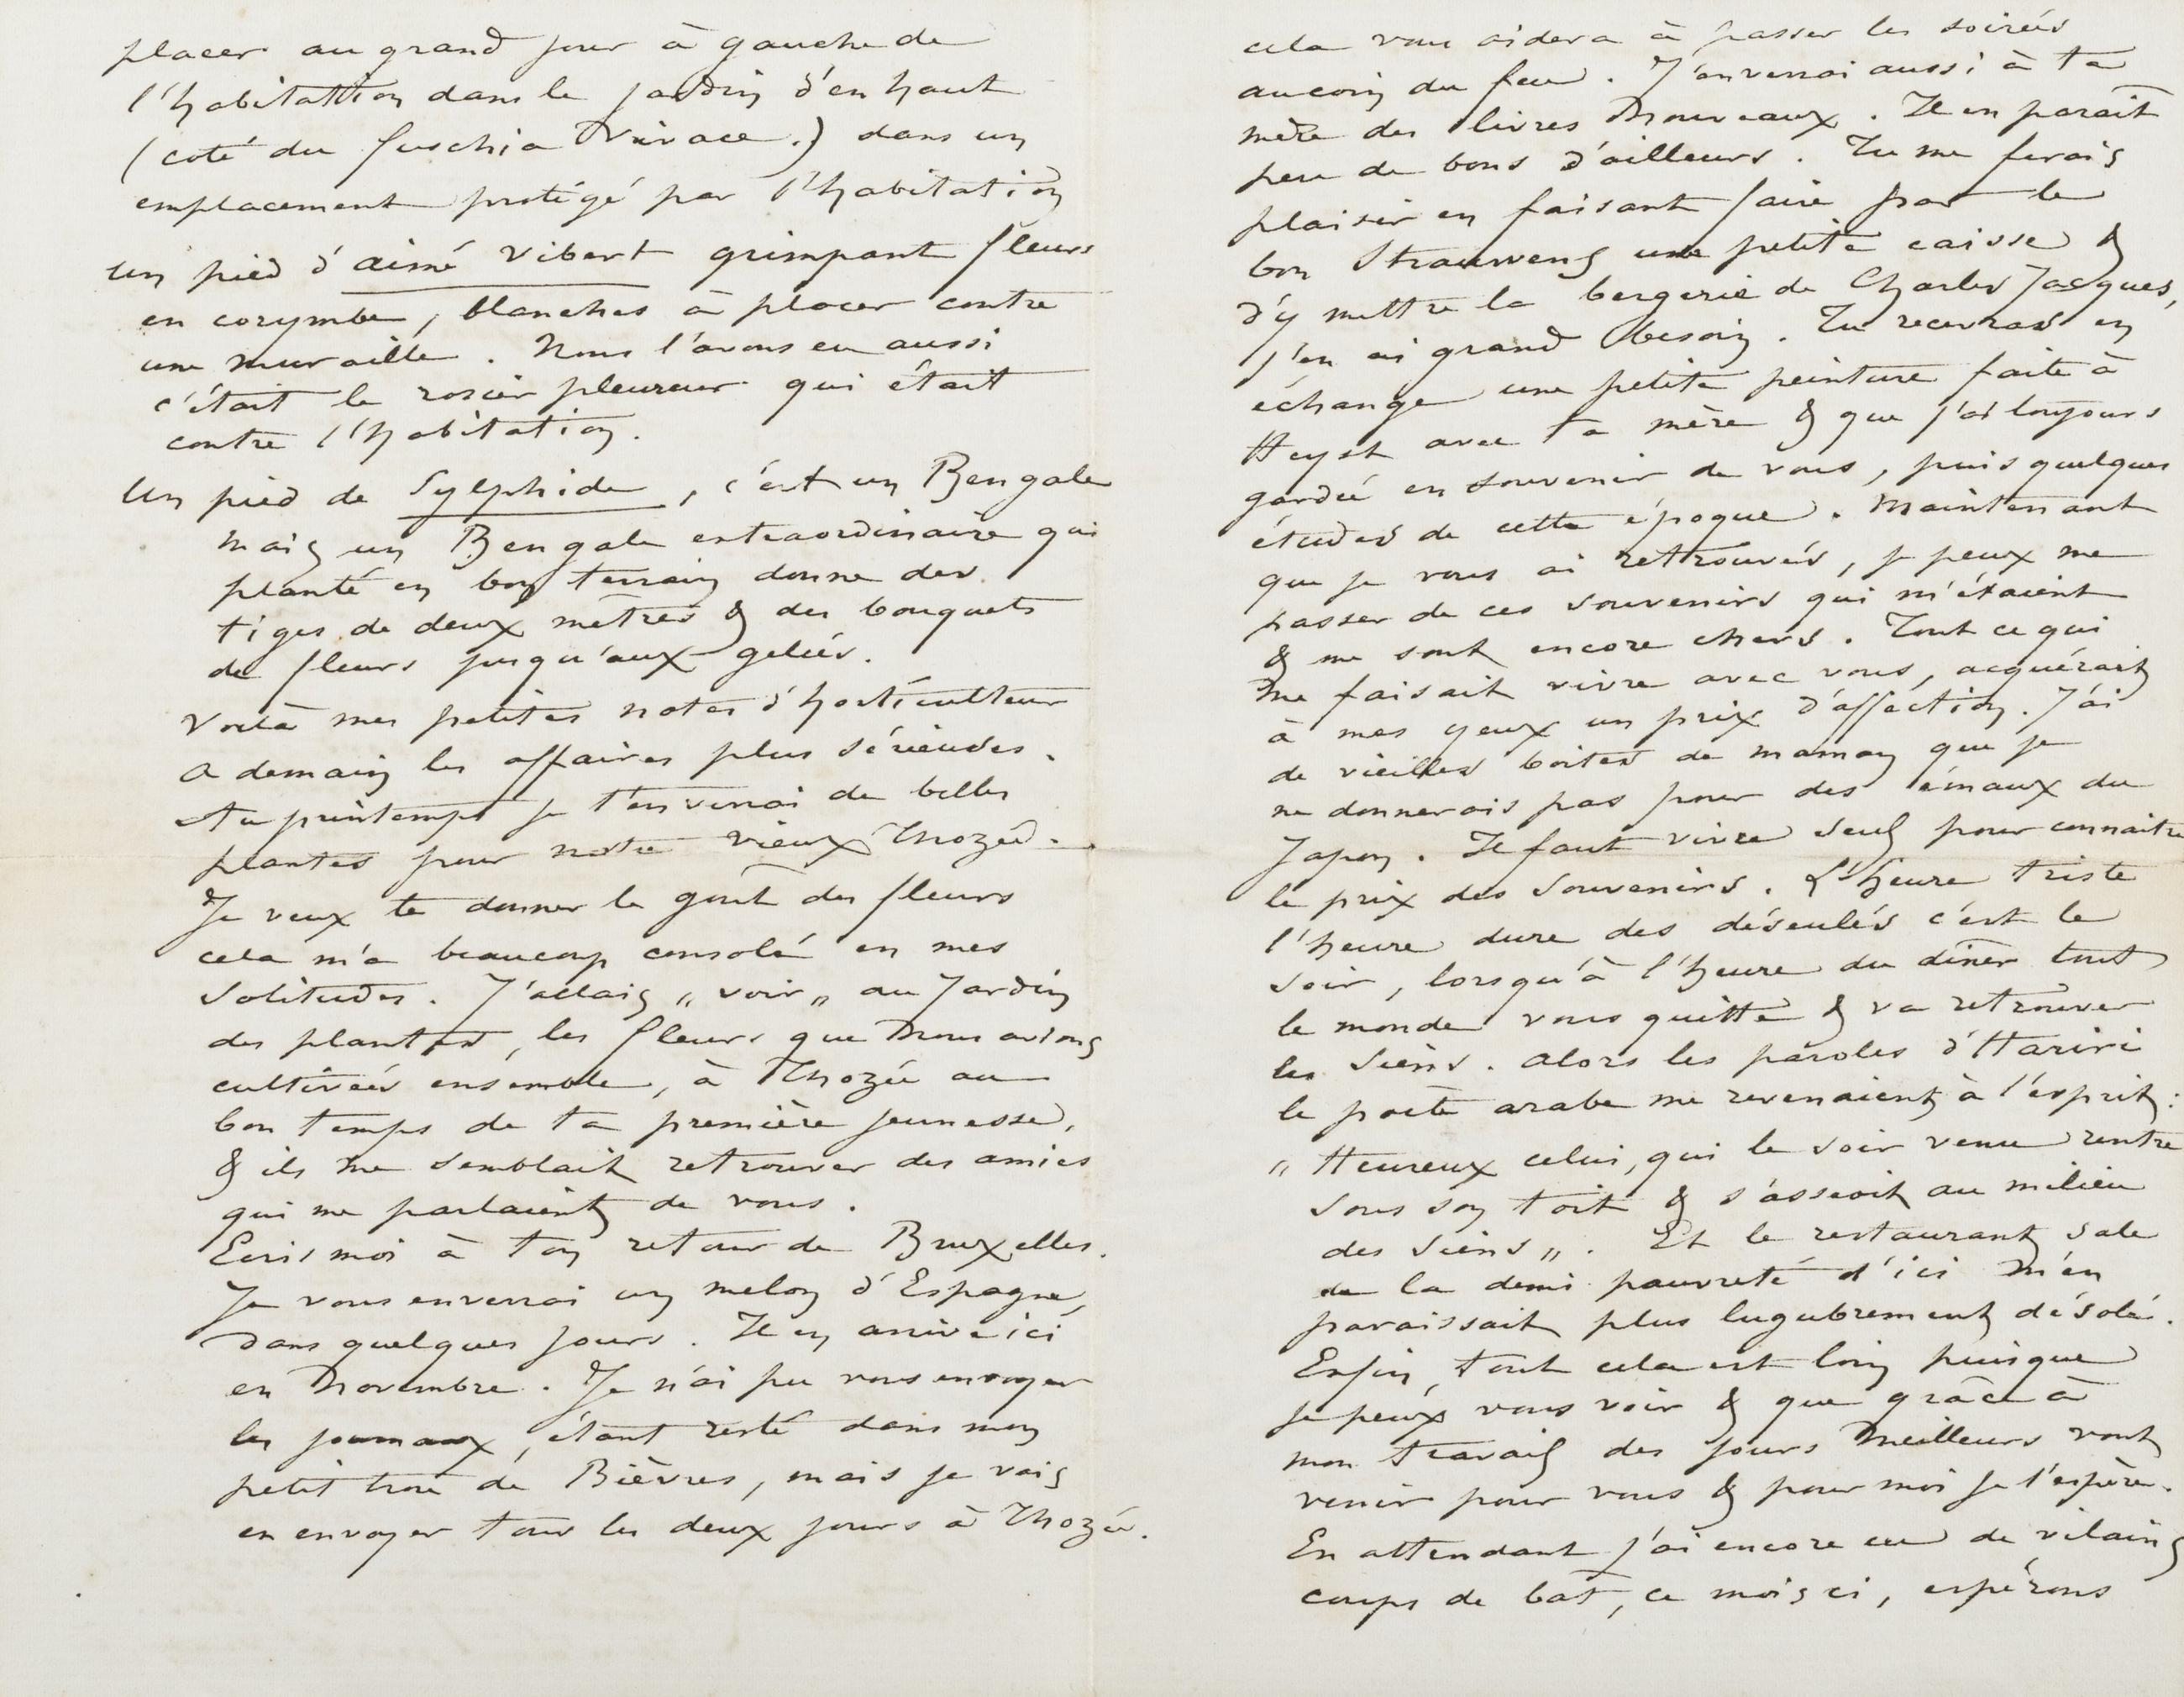 placer au grand jour à gauche de
l'habitattion dans le jardin d'en haut
(coté du fuschia Vivace.) dans un
emplacement protégé par l'habitation
Un pied d'aimé Vibert grimpant fleurs
en corymbe, blanches à placer contre
une muraille. Nous l'avons eu aussi
c'était le rosier pleureur qui était
contre l'habitation.
Un pied de Sylphide, c'est un Bengale
mais un Bengale extraordinaire qui
planté en bon terrain donne des
tiges de deux mètres & des bouquets
de fleurs jusqu'aux gelées.
Voilà mes petites notes d'horticulteur
a demain les affaires plus sérieuses.
Au printemps je t'enverrai de belles
plantes pour notre vieux Thozée.
Je veux te donner le goût des fleurs
cela m'a beaucoup consolé en mes
solitudes. J'allais „voir„ au Jardin
des plantes, les fleurs que nous avions
cultivées ensemble, à Thozée au
bon temps de ta première jeunesse,
& ils me semblait retrouver des amies
qui me parlaient de vous.
Ecris moi à ton retour de Bruxelles.
Je vous enverrai un melon d'Espagne,
dans quelques jours. Il en arrive ici
en Novembre. Je n'ai pu vous envoyer
les journaux, étant resté dans mon
petit trou de Bièvres, mais je vais
en envoyer tous les deux jours à Thozée.
cela vous aidera à passer les soirées
au coin du feu. J'enverrai aussi à ta
mère des livres nouveaux. Il en parait
peu de bons d'ailleurs. Tu me ferais
plaisir en faisant faire par le
bon une petite caisse &
d'y mettre la bergerie de Charles Jacques,
j'en ai grand besoin. Tu recevras en
échange une petite peinture faite à
Heyst avec ta mère & que j'ai toujours
gardée en souvenir de vous, puis quelques
études de cette époque. Maintenant
que je vous ai retrouvés, je peux me
passer de ces souvenirs qui m'étaient
& me sont encore chers. Tout ce qui
me faisait vivre avec vous, acquérait
à mes yeux un prix d'affection. J'ai
de vieilles boites de maman que je
ne donnerais pas pour des émaux du
Japon. Il faut vivre seul pour connaitre
le prix des souvenirs. L'heure triste
l'heure dure des déseulés c'est le
soir, lorsqu'à l'heure du dîner tout
le monde vous quitte & va retrouver
les siens. alors les paroles d'Hariri
le poète arabe me revenaient à l'esprit:
„Heureux celui, qui le soir venu rentre
sous son toit & s'asseoit au milieu
des siens„. Et le restaurant sale
de la demi pauvreté d'ici m'en
paraissait plus lugubrement désolé.
Enfin, tout cela est loin puisque
je peux vous voir & que grâce à
mon travail des jours meilleurs vont
venir pour vous & pour moi je l'espère.
En attendant j'ai encore eu de vilains
coups de bât, ce mois ci, espérons